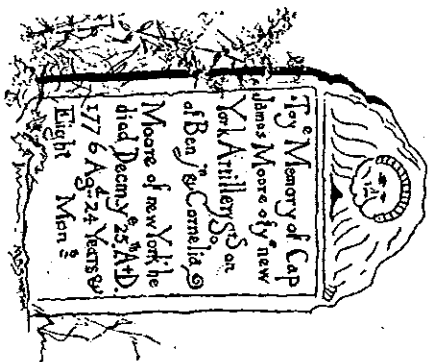 To y^e Memory of Cap
James Moore of y^e new
York Artillery Co Son
of Benj^n & Cornelia
Moore of new York he
died Decm y^e 25^th A+D.
1776 Ag^d 24 Years &
Eight Mon^s